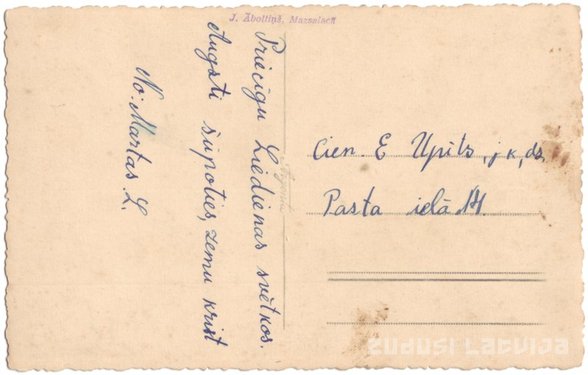 J. Āboltiņš, Mazsalacā
Priecīgu Liedienas svētkos.
Augsti šūpoties, zemu krist
No: Martas. L.
Cien. E Upīts, j k, dz,
Pasta ielā 14.
zudusi Latvija